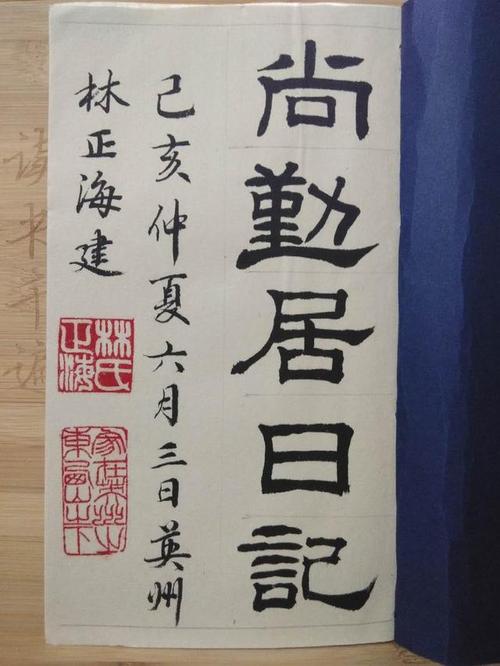 尚勤居日記
己亥仲夏六月三日英州
林正海建
林氏正海